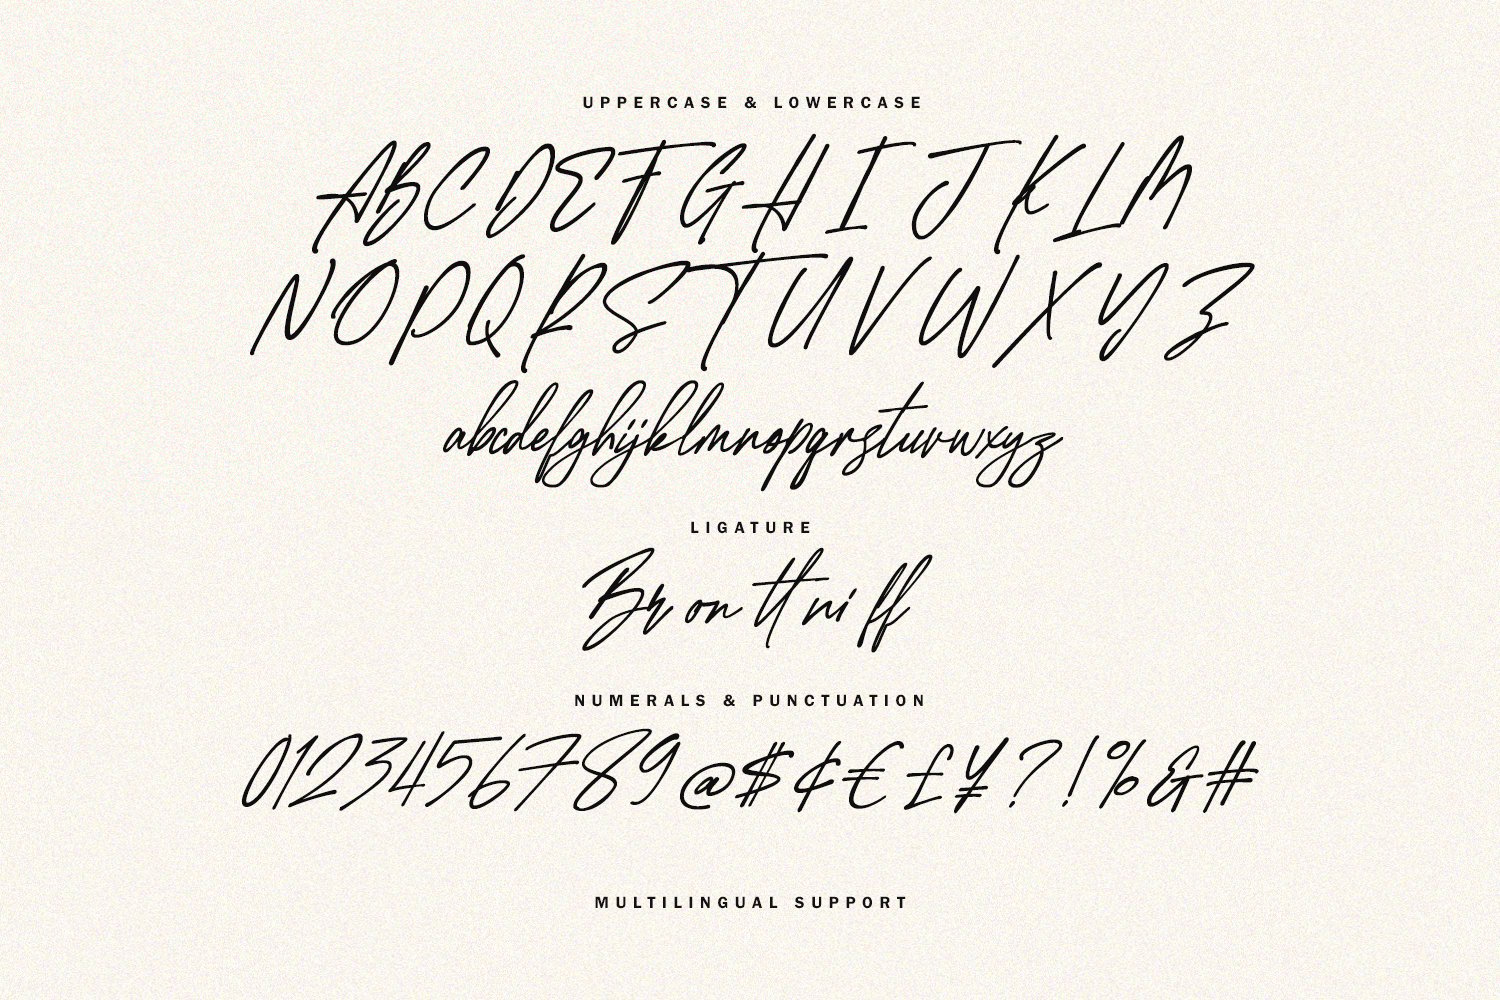 UPPERCASE & LOWERCASE
ABCDEFGHIJKLM
NOPQRSTUVWXYZ
abcdefghijklmnopqrstuvwxyz
LIGATURE
Br on tt ni ff
NUMERALS & PUNCTUATION
0123456789@$¢€£¥?!%&#
MULTILINGUAL SUPPORT